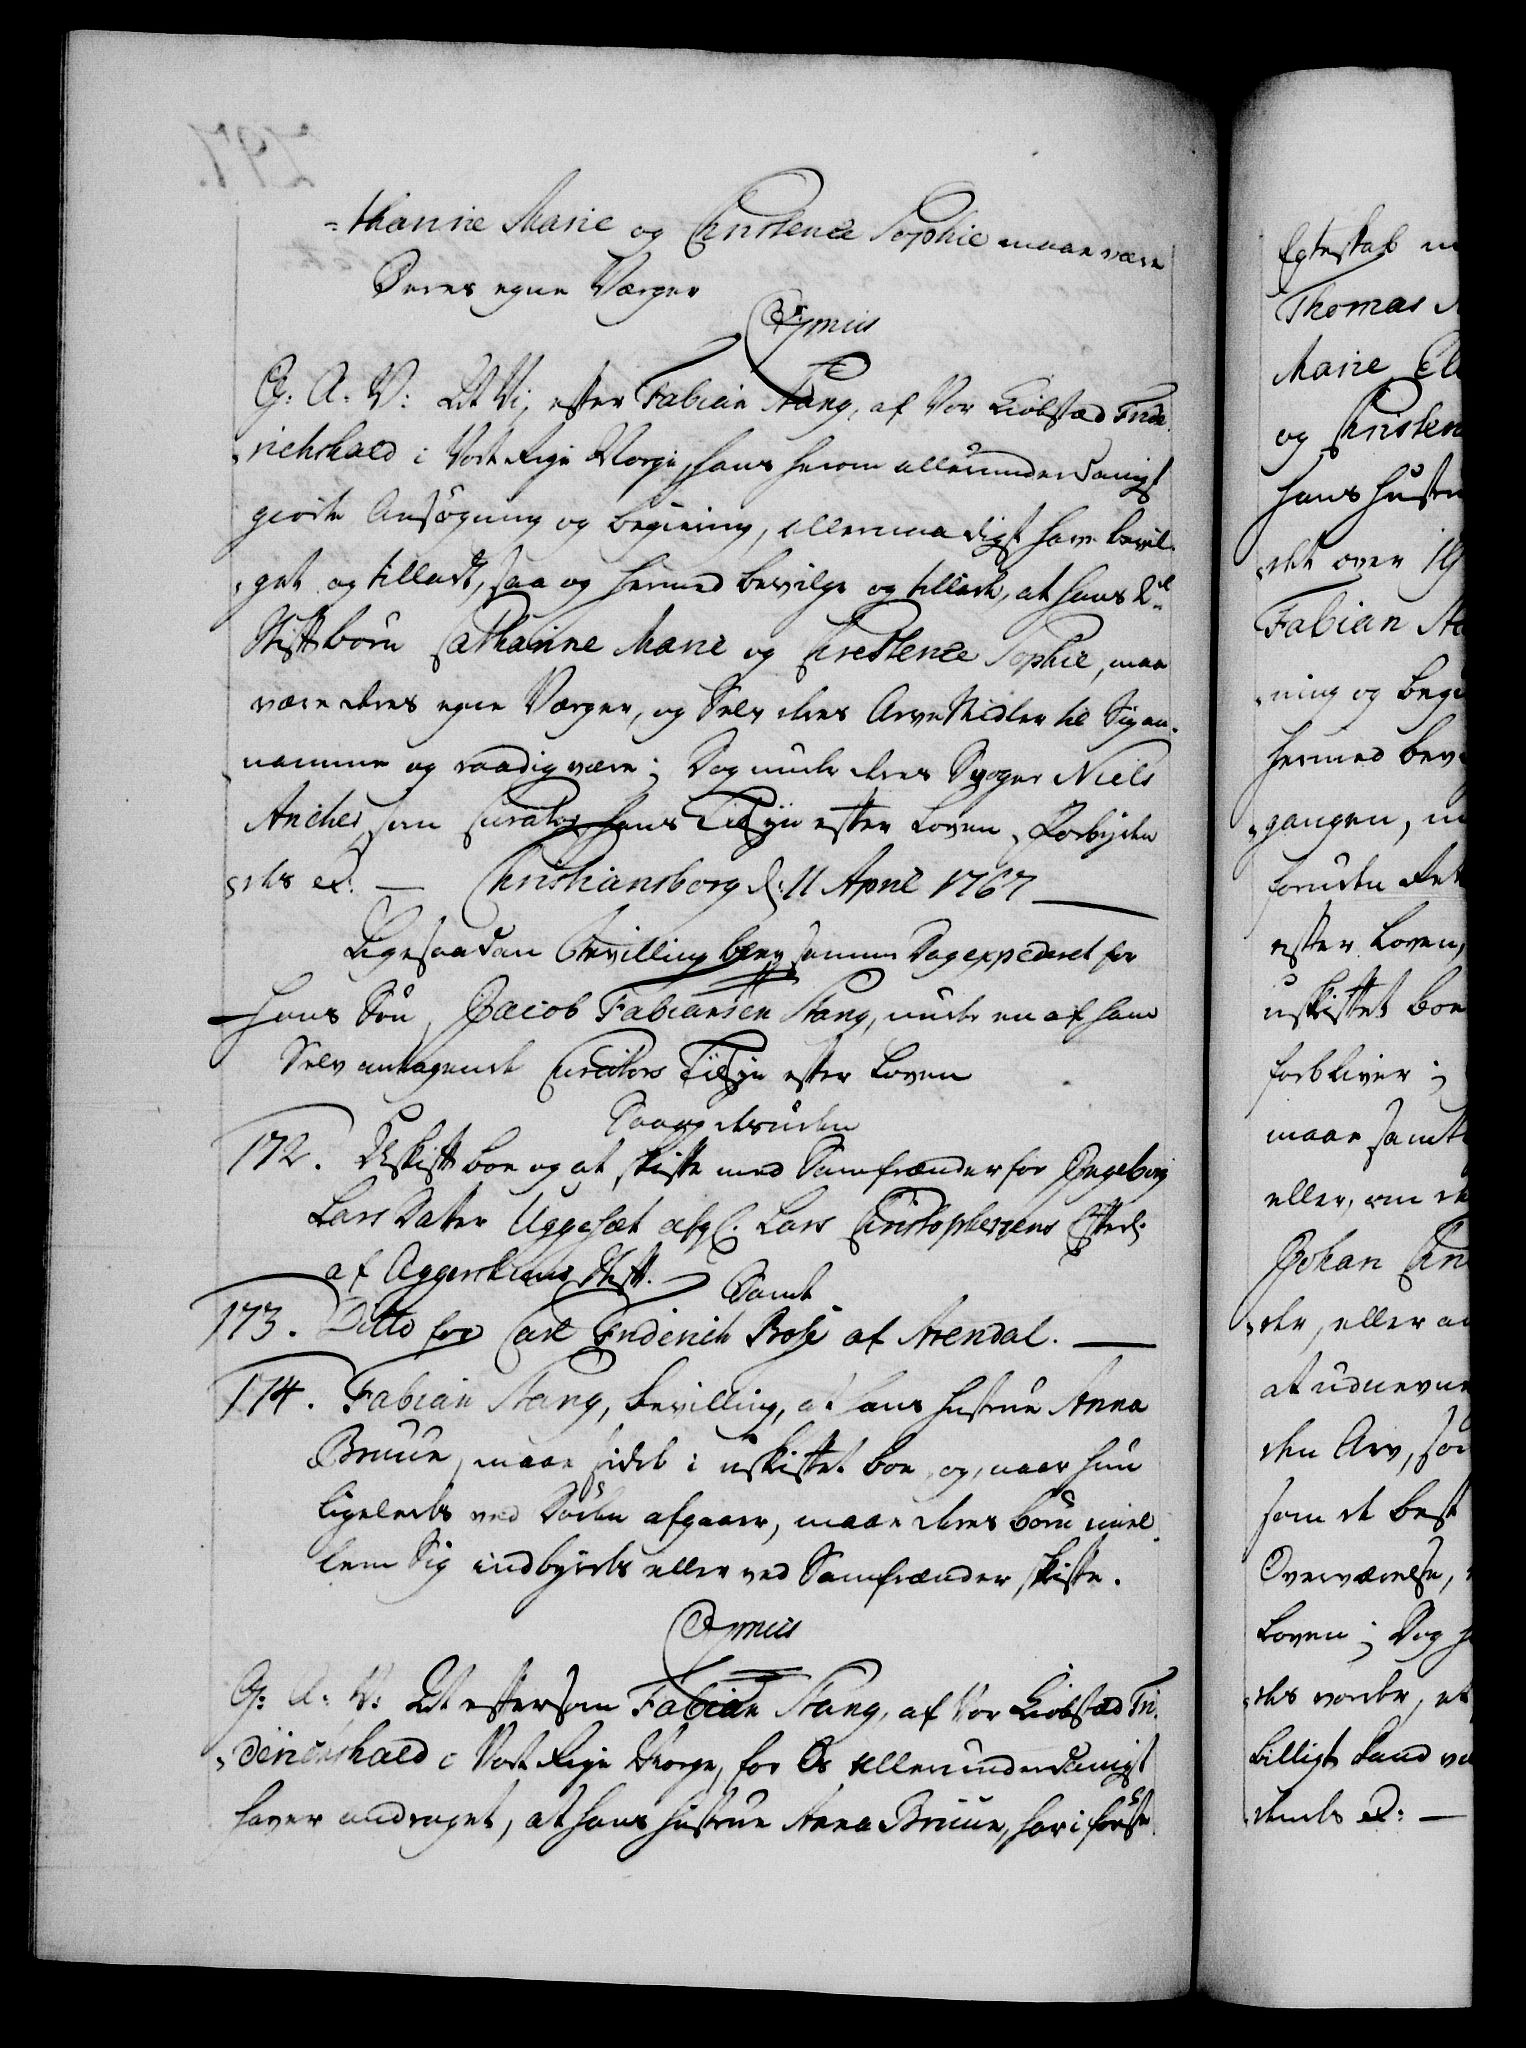 =tharine Marie og Christence Sophie maae være
Deres egne Værger
Gratis
G: A: V: At Vi, efter Fabian Stang, af Vor Kiöbstæd Fride
richshald i Vort Rige Norge, hans herom allerunderdanigst
giorte Ansögning og begiering, allernaadigst have bevil-
get og tilladt, saa og hermed bevilge og tillade, at hans 2de
Stiftbörn Catharine Marie og Christence Sophie, maa
være deres egne Værger, og Selv deres Arve Midler til Sig an-
namme og raadig være; Dog under deres Svoger Niels
Anches som Curator hans Tilsyn efter Loven, Forbydende
des etc: — Christiansborg d: 11 April 1767
Ligesaadan Bevilling blev samme Dag expederet for
hans Sön, Jacob Fabiansen Stang, under en af ham
Selv antagende Curators Tilsyn efter Loven
Saavelsom
172. Uskift boe og at skifte med Samfrænder for Ingeborg
Lars Datter Uggesæt afg: Lars Christophersens Efterl:
af Aggershuus Stift. Samt
173. Ditto for Carl Friderich Bose af Arendal.
174. Fabian Stang, bevilling, at hans hustrue Anna
Bruun, maae sidde i uskiftet boe, og, naar hun
ligeledes ved Döden afgaaer, maae deres börn imel-
lem Sig indbyrdes eller ved Samfrænder skifte.
Gratis
G: A: V: At eftersom Fabian Stang, af Vor Kiöbstæd Fri-
derichshald i Vort Rige Norge, for Os allerunderdanigst
haver andraget, at hans hustrue Anna Bruun, har i förste
Egteskab
Thomas
Marie
og Christen
hans hustru
det over 19
Fabian
ning og begi
hermed bev
gangen,
foruden
efter Loven,
uskiftet boe
forbliver;
maae samt
eller, om
Johan
der, eller
at udnevne
den Arv, som
som det best
Overværelse,
Loven; Dog
des vorder, et
billigt
dendes etc: —